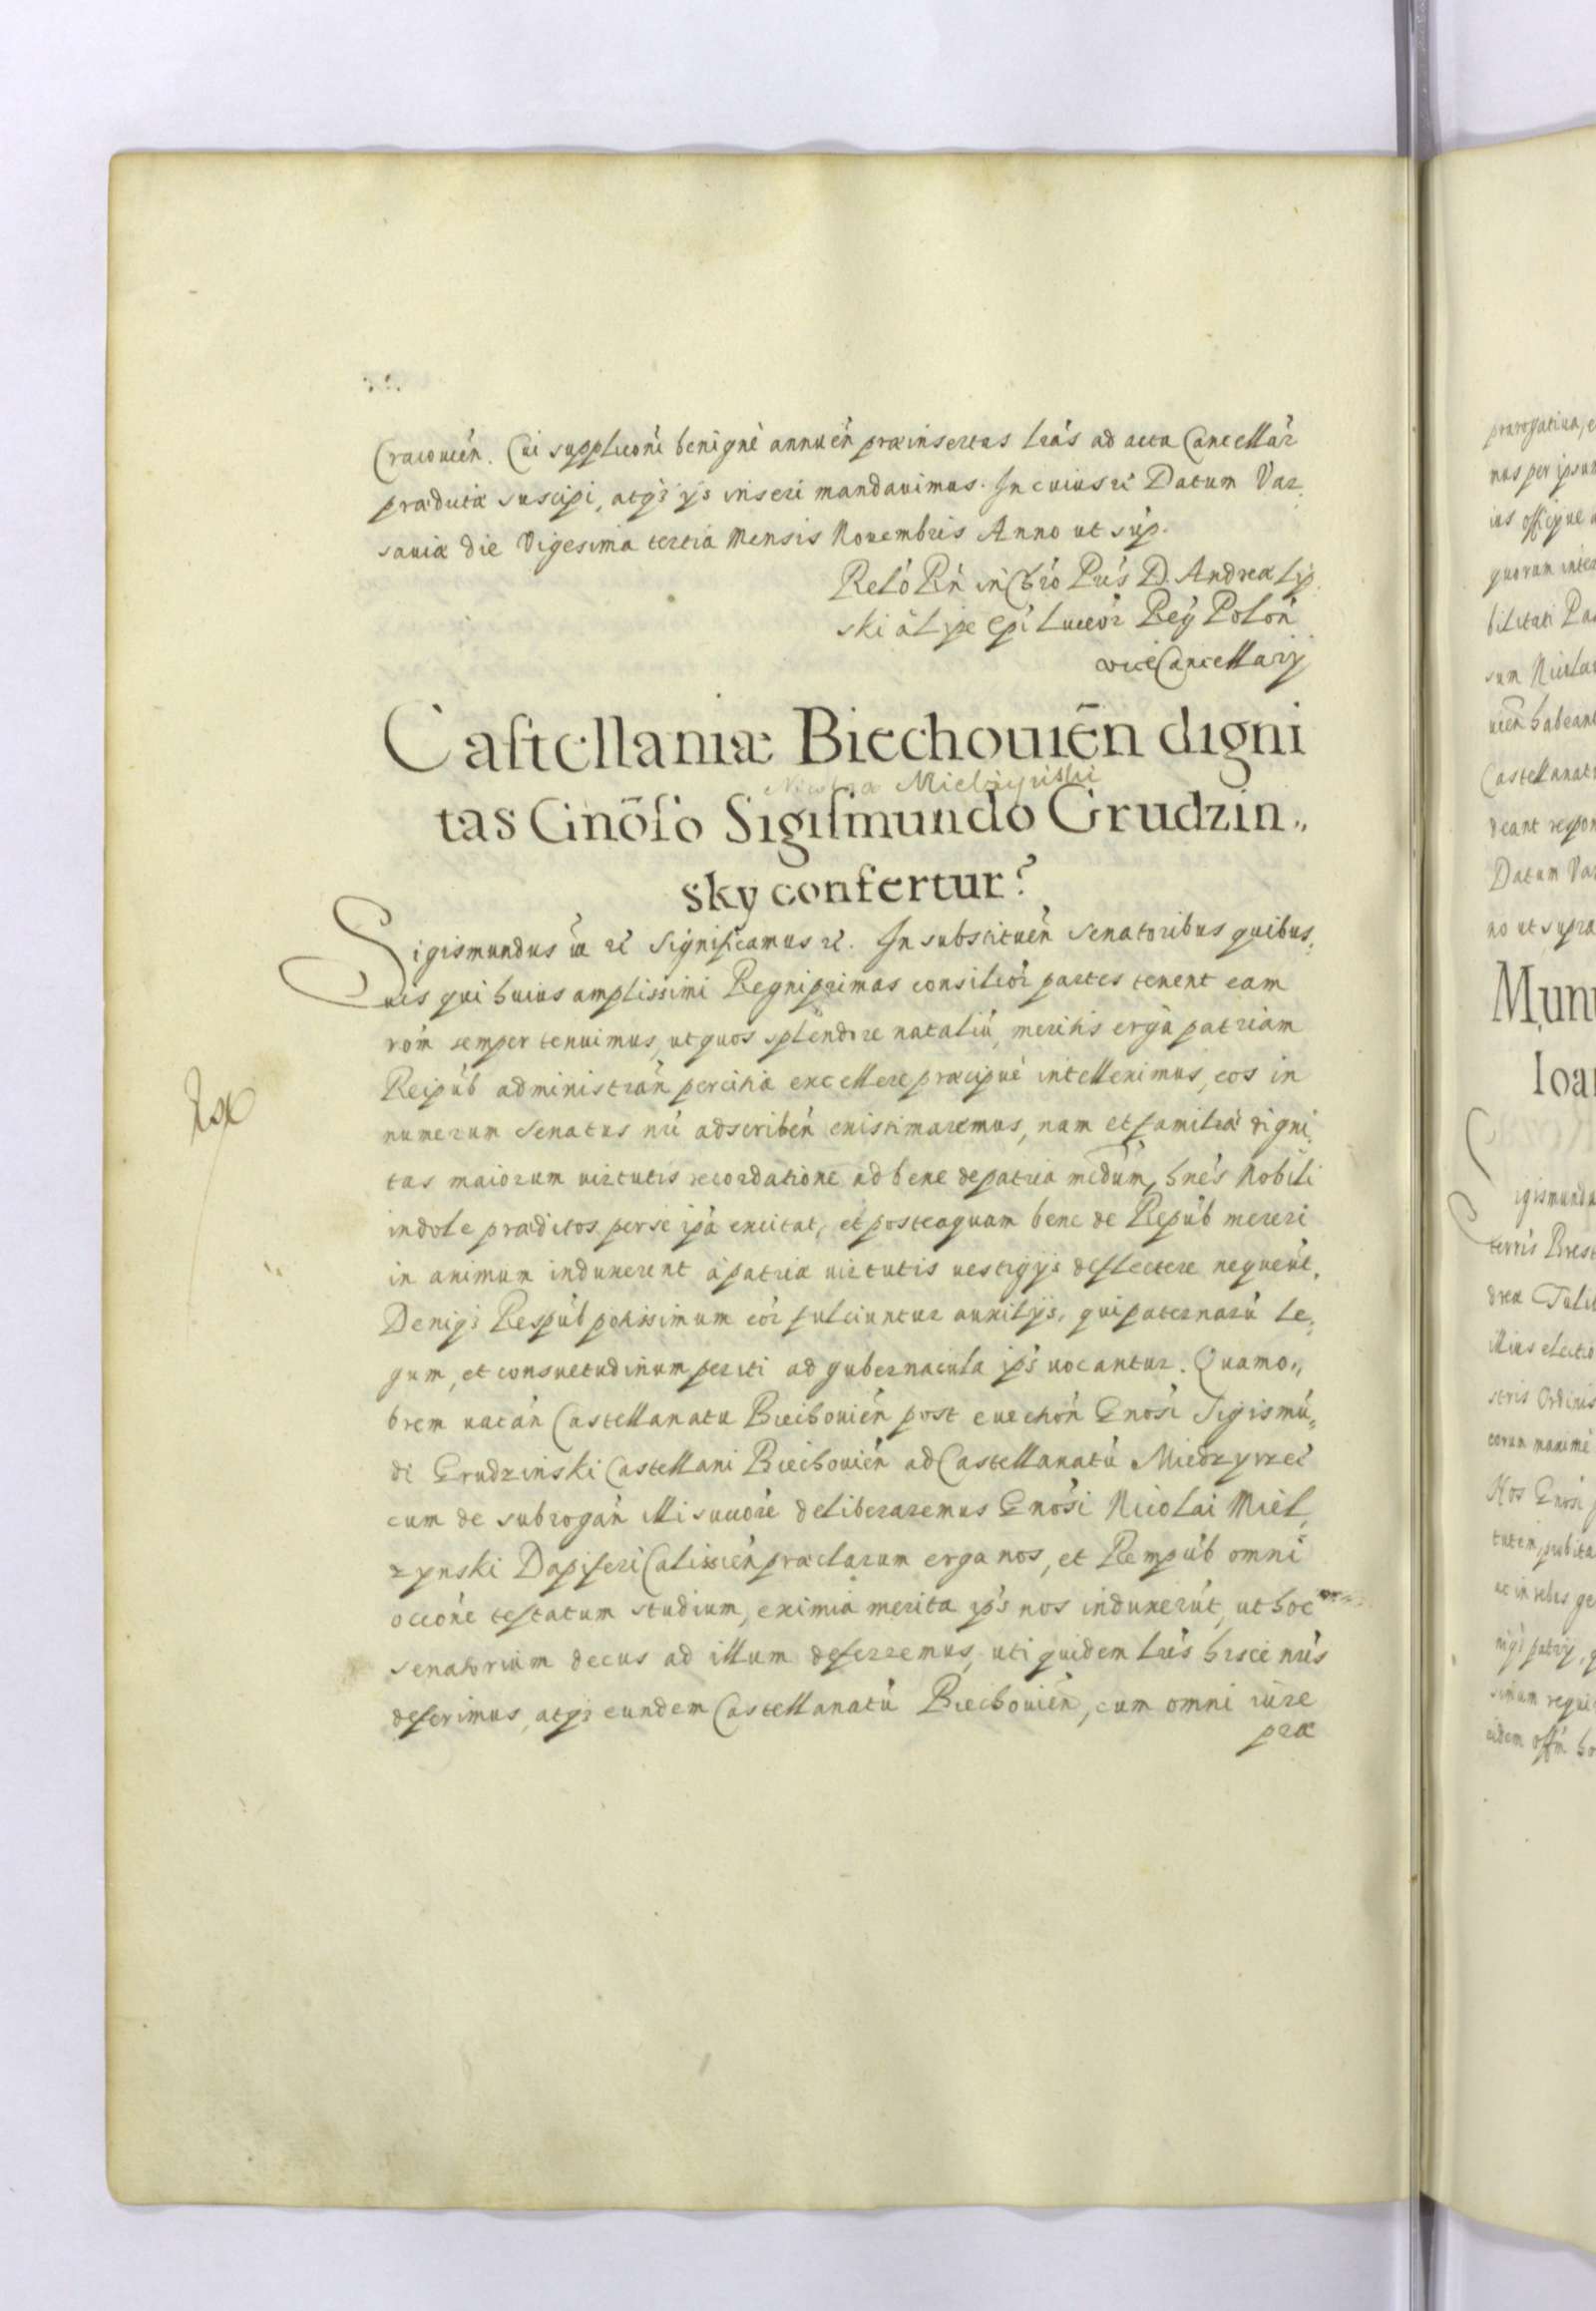 Cracouień. Cui supplicoñi benignè annueń præinsertas lrás ad acta Cancellár
prædictæ suscipi, atq3 ijs inseri mandauimus. In cuius rei Datum Var,
sauiæ die Vigesima tertia Mensis Nouembris Anno ut sup.
Reló Rń in Chró Prís D. Andreæ Lip
ski à Lipe Epi Luceór Reg Polóń
viceCancellarij
Castellaniæ Biechouiēn digni
Mielżyński
tas Gnōso Sigismundo Grudzin,,
sky confertur?
Sigismundus iii rc Significamus rc. In substitueń Senatoribus quibus,
uis qui huius amplissimi Regni primas consilior partes tenent eam
róm semper tenuimus, ut quos splendore nataliú, meritis ergà patriam
Reipúb administrań peritia excellere præcipuè intellexemus, eos in
numerum Senatus nri adscribeń existimaremus, nam et familiæ digni,
tas maiorum uirtutis recordatione ad bene de patria mrdum, hnés Nobili
indole præditos per se ipá excitat, et posteaquam bene de Repúb mereri
in animum induxerunt à patriæ uirtutis uestigijs deflectere nequeút.
Deniq3 Respúb potissimum eór fulciuntur auxilijs, qui paternarú le,
gum, et consuetudinum periti ad gubernacula ips uocantur. Quamo,,
brem uacań Castellanatu Biechouień post euectioń Gnósi Sigismú,
di Grudzinski Castellani Biechouień ad Castellanatú Miedzyrzeć
cum de subrogań illi succóre deliberaremus Gnósi Nicolai Miel,
zynski Dapiferi Calissień præclarum erga nos, et Rempúb omni
occóne testatum studium, eximia merita ips nos induxerút, ut hoc
senatorium decus ad illum deferremus, uti quidem lrís hisce nris
deferimus, atq3 eundem Castellanatú Biechouień, cum omni iúre
præ